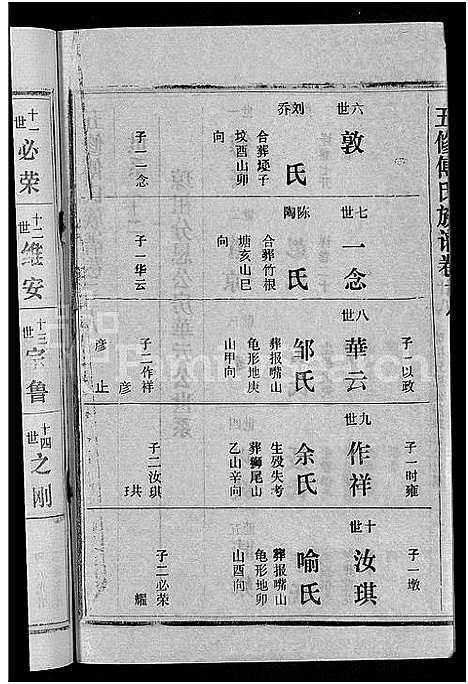 五修傅氏族谱卷
六世 敦
刘乔 氏
合葬埂子
坟酉山卯
向
子二 二念
七世 一念
陈陶 氏
合葬竹根
塘亥山巳
向
子一华云
子一以政
八世 華云
邹氏
葬报嘴山
龟形地庚
山甲向
子二作祥
彦彦
止
子一时雍
九世 作祥
余氏
生殁失考
葬狮尾山
乙山辛向
子二汝琪
珙
子一墩
十世 汝琪
喻氏
葬报嘴山
龟形地卯
山酉向
子二必荣
耀
十一世 必荣
十二世 维安
十三世 宗鲁
十四世 之刚